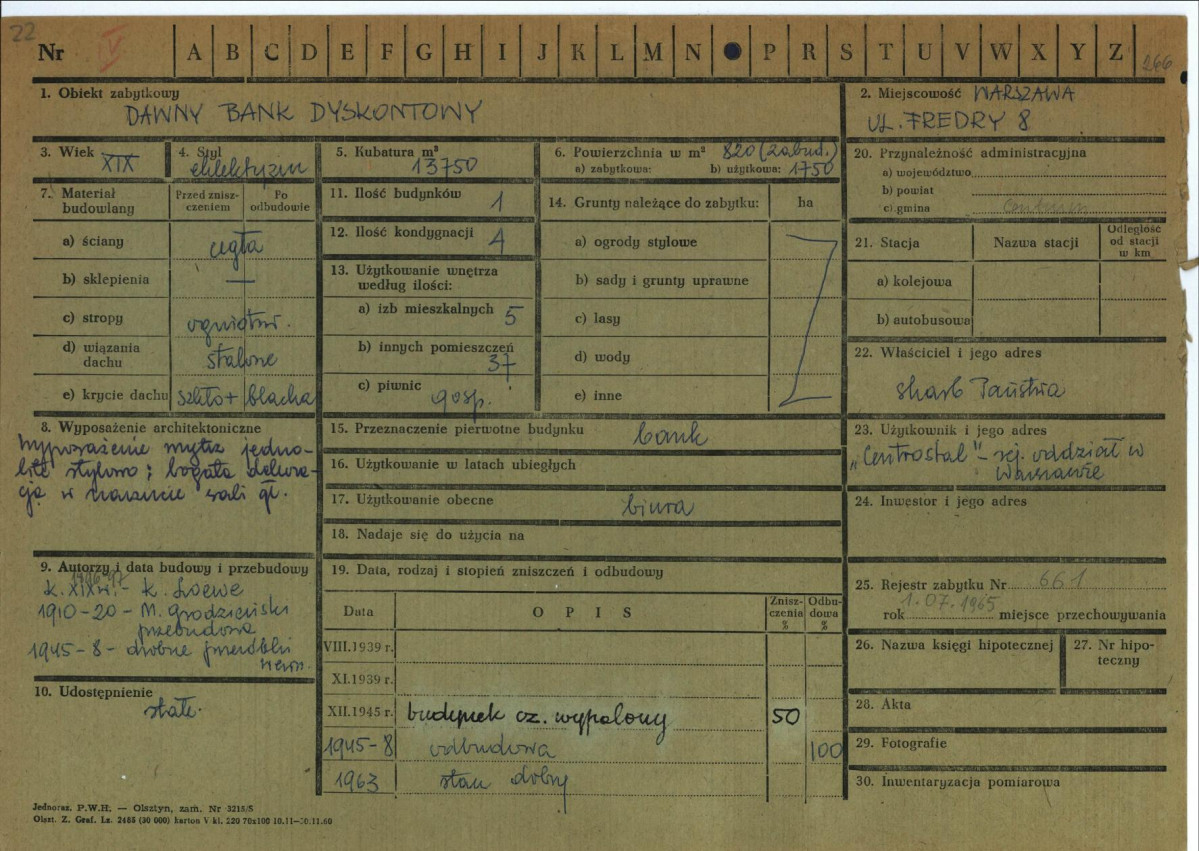 22
Nr IV A B C D E F G H I J K L M N P R S T U V W X Y Z 266
1. Obiekt zabytkowy
DAWNY BANK DYSKONTOWY
2. Miejscowość WARSZAWA
UL. FREDRY 8
3. Wiek XIX
4. Styl eklektyzm
5. Kubatura m³ 13750
6. Powierzchnia w m² 820 (zabud.)
a) zabytkowa: b) użytkowa: 1750
7. Materiał budowlany
Przed znisz-
czeniem
Po
odbudowie
a) ściany cegła
b) sklepienia —
c) stropy ogniotrw.
d) wiązania
dachu stalowe
e) krycie dachu szkło + blacha
8. Wyposażenie architektoniczne
Wyposażenie wnętrz jedno-
lite stylowo; bogata dekora-
cja w zwłaszcza sali gł.
9. Autorzy i data budowy i przebudowy
1896-97
k. XIX w. - K. Loewe
1910-20 - M. Grodzieński
przebudowa
1945-8 - drobne przeróbki
wewn.
10. Udostępnienie
stałe.
11. Ilość budynków 1
12. Ilość kondygnacji 4
13. Użytkowanie wnętrza
według ilości:
a) izb mieszkalnych 5
b) innych pomieszczeń
37
c) piwnic
gosp.
14. Grunty należące do zabytku: ha
a) ogrody stylowe
b) sady i grunty uprawne
c) lasy
d) wody
e) inne
15. Przeznaczenie pierwotne budynku bank
16. Użytkowanie w latach ubiegłych
17. Użytkowanie obecne biura
18. Nadaje się do użycia na
19. Data, rodzaj i stopień zniszczeń i odbudowy
Data OPIS
Znisz-
czenia
%
Odbu-
dowa
%
VIII.1939 r.
XI.1939 r.
XII.1945 r. budynek cz. wypalony 50
1945-8 odbudowa 100
1963 stan dobry
20. Przynależność administracyjna
a) województwo
b) powiat
c) gmina
21. Stacja Nazwa stacji
Odległość
od stacji
w km
a) kolejowa
b) autobusowa
22. Właściciel i jego adres
skarb Państwa
23. Użytkownik i jego adres
„Centrostal" - rej. oddział w
Warszawie
24. Inwestor i jego adres
25. Rejestr zabytku Nr 661
rok 1.07.1965 miejsce przechowywania
26. Nazwa księgi hipotecznej
27. Nr hipo-
teczny
28. Akta
29. Fotografie
30. Inwentaryzacja pomiarowa
Jednoraz. P.W.H. — Olsztyn, zam. Nr 3215/S
Olszt. Z. Graf. Lz. 2485 (30 000) karton V kl. 220 70x100 10.11—30.11.60